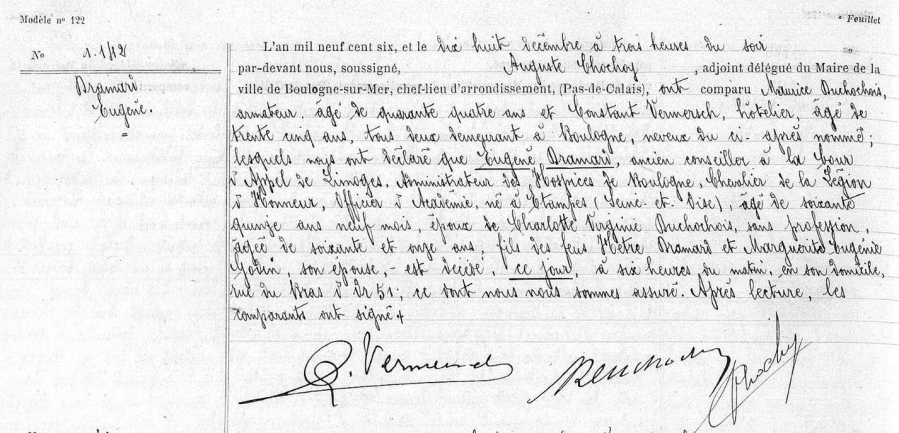 Modèle nº 122
Feuillet
Nº 1.112
Bramard
Eugène.
L'an mil neuf cent six, et le dix huit décembre à trois heures du soir
par-devant nous, soussigné, Auguste Chochoy, adjoint délégué du Maire de la
ville de Boulogne-sur-Mer, chef-lieu d'arrondissement, (Pas-de-Calais), ont comparu Maurice Duchochois,
armateur, âgé de quarante quatre ans et Constant Vermersch, hôtelier, âgé de
trente cinq ans, tous deux demeurant à Boulogne, neveux du ci-après nommé;
lesquels nous ont déclaré que Eugène Bramard, ancien conseiller à la Cour
d'Appel de Limoges, Administrateur des Hospices de Boulogne, Chevalier de la Légion
d'Honneur, Officier d'Académie, né à Etampes (Seine-et-Oise), âgé de soixante
quinze ans neuf mois, époux de Charlotte Virginie Duchochois, sans profession,
âgée de soixante et onze ans, fils des feus Bramard et Marguerite Eugénie
Godin, son épouse, - est décédé, ce jour, à six heures du matin, en son domicile,
rue du Bras d'Or 51; ce dont nous nous sommes assuré. Après lecture, les
comparants ont signé +
C. Vermersch Duchochois Chochoy